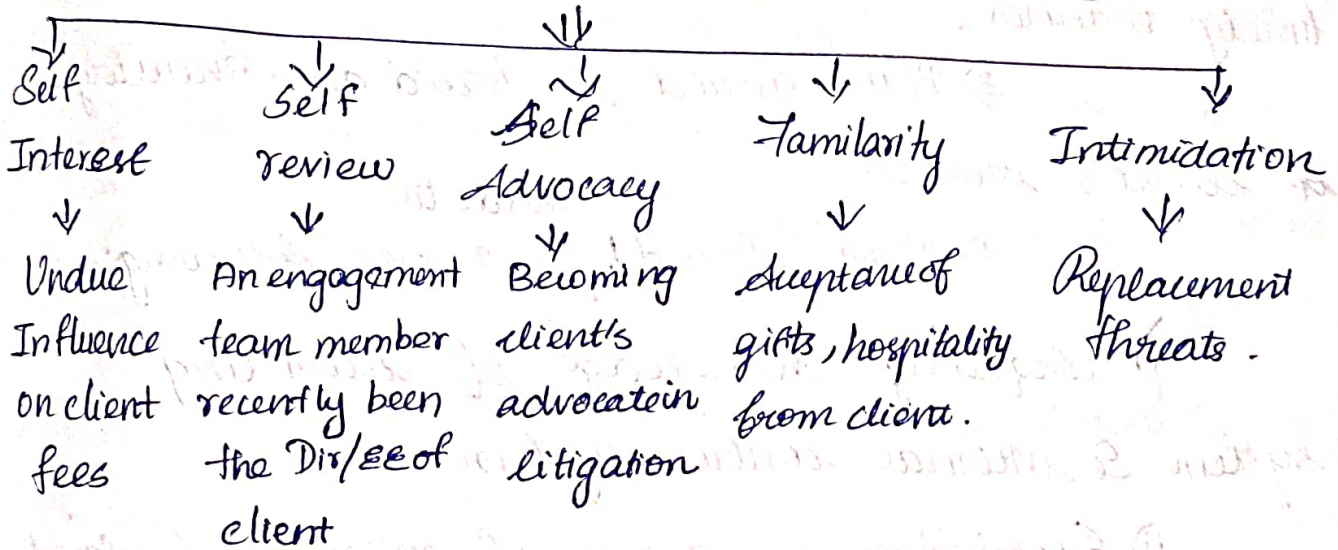 Self
Interest
Undue
Influence
on client
fees
Self
review
An engagement
team member
recently been
the Dir/EE of
client
Self
Advocacy
Becoming
client's
advocate in
litigation
Familarity
Acceptance of
gifts, hospitality
from client.
Intimidation
Replacement
threats.